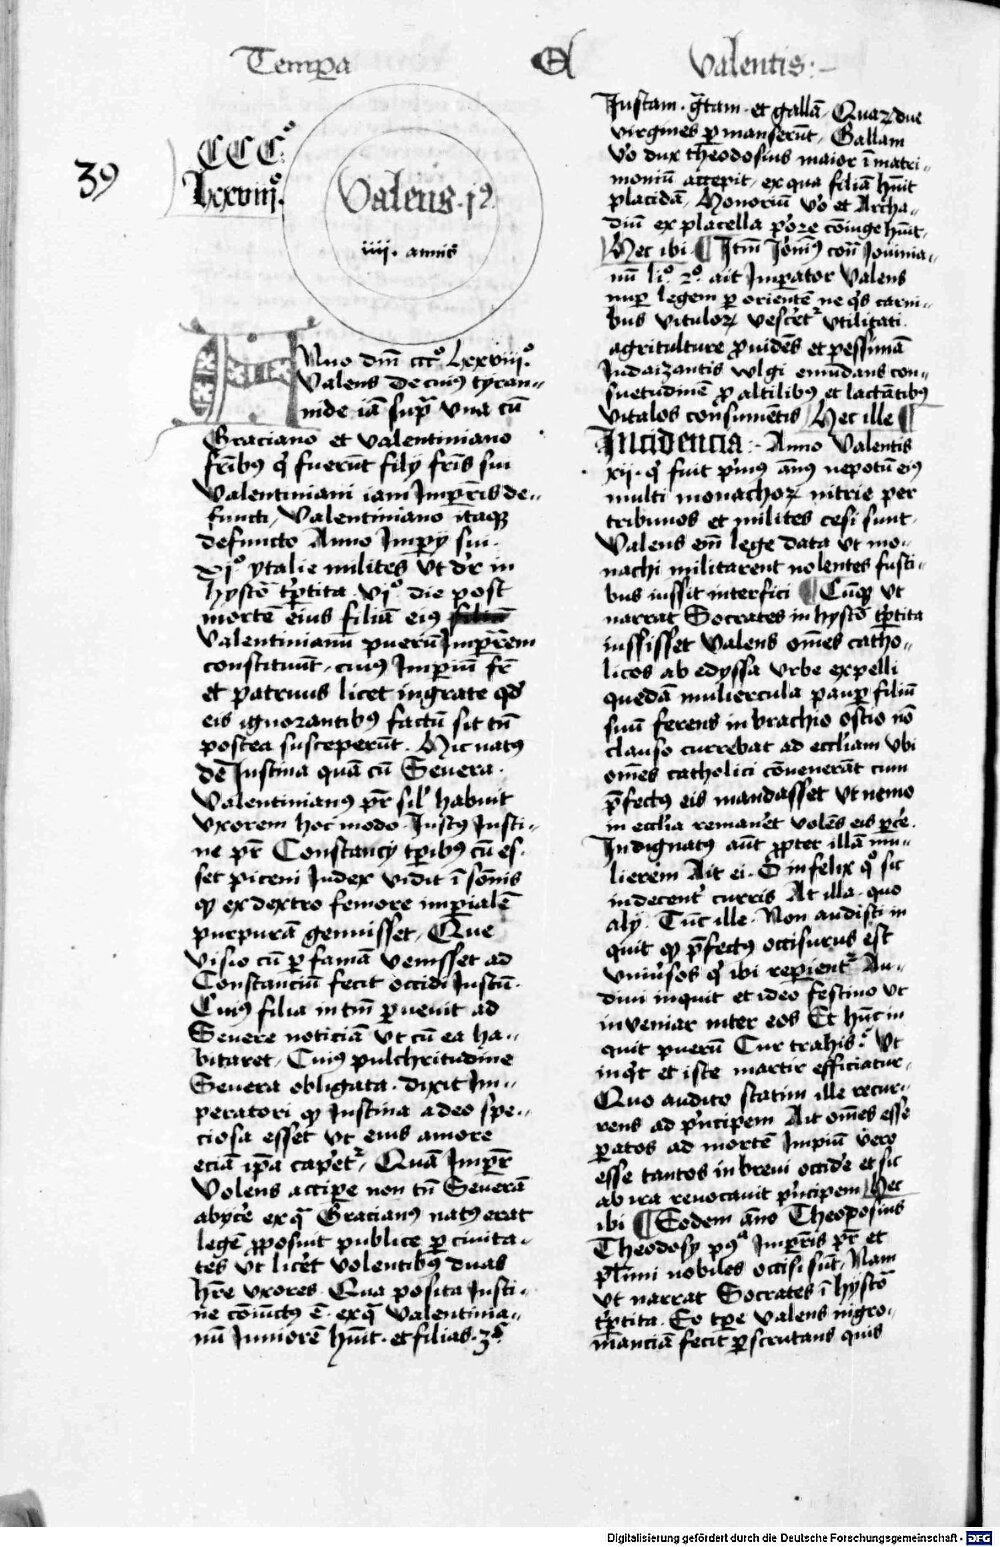 Tempa Et Valentis
39
CCCº
lxxviijº
Valens j9
iiij. annis
Anno dnī cccº lxxviijº
Valens de cuiꝰ tyran-
nide iā supͣ vna cū
Graciano et valentiniano
frībꝰ qͥ fuerūt filij frīs sui
Valentiniani iam Imꝑris de-
functi, Valentiniano itaqꝫ
defuncto Anno Impij sui
xjº ytalie milites vt dr̄ in
hystō tꝑtita vjº die post
mortē eius filiū eiꝰ
Valentinianū puerū Imꝑrem
constituūt, cuiꝰ Imperiū fr̄
et patruus licet ingrate qd̄
eis ignorantibꝰ factū sit tn̄
postea susceperūt. Hic natꝰ
de Justina quā cū Seuera
Valentinianꝰ pr̄ sil' habuit
vxorem hoc modo. Justꝰ Justi-
ne pr̄ Constancij tꝑibꝰ cū es-
set piceni Judex vidit ī sōnis
qꝫ ex dextro femore imꝑialē
purpurā genuisset, Que
visio cū ꝑ famā venisset ad
Constanciū fecit occidi Justū.
Cuiꝰ filia in tm̄ ꝑuenit ad
Seuere noticiā vt cū ea ha-
bitaret, Cuiꝰ pulchritudine
Seuera obligata. dixit Im-
peratori qꝫ Justina adeo spe-
ciosa esset vt eius amore
eciā ipā capet᷑, Quā Imꝑr
Volens accipe non tn̄ Seuerā
abijcē ex qͣ Gracianꝰ natꝰ erat
legē ꝓposuit publice ꝑ ciuita-
tes vt licet volentibꝰ duas
hr̄e vxores. Qua posita Justi-
ne cōiūctꝰ ē. ex qͣ Valentinia-
nū Juniorē hūit. et filias. 3s
Justam. gͣtam. et gallā, Quaꝝ due
virgines ꝑmanserūt, Gallam
vͦo dux theodosius maior ī matri-
moniū accepit, ex qua filiā hūit
placidā, Honoriū vͦo et Archa-
diū ex placella pͥore cōiuge hūit.
Hec ibi ¶ Itm̄ Jeroniꝰ contͣ Jouinia-
nū liº 2º ait Imꝑator Valens
nuꝑ legem ꝑ orientē ne qͥs carni-
bus vituloꝝ vescet᷑ vtilitati
agriculture ꝓuidēs et pessimā
Judaizantis wlgi emūdans con-
suetudinē ꝓ altilibꝰ et lactātibꝰ
vitulos consumētis Hec ille ¶
Incidencia. Anno Valentis
xij. qͥ fuit pͥmꝰ ānꝰ nepotū eiꝰ
multi monachoꝝ nitrie per
tribunos et milites cesi sunt.
Valens em̄ lege data vt mo-
nachi militarent nolentes fusti-
bus iussit interfici ¶ Cūqꝫ vt
narrat Socrates in hystō tꝑtita
iussisset Valens om̄es catho-
licos ab edyssa vrbe expelli
quedā muliercula pauꝑ filiū
suū ferens in brachio ostio nō
clauso currebat ad eccl'iam vbi
om̄es catholici cōuenerāt cum
p̄fectus eis mandasset vt nemo
in eccl'ia remanet volēs eis ꝑcē.
Indignatꝰ aūt ꝓpter illā mu-
lierem Ait ei. O infelix qͦ sic
indecent᷑ curris At illa. quo
alij. Tūc ille. Non audisti in
quit qꝫ p̄fectꝰ occisurus est
vniūsos qͥ ibi reperient᷑ Au-
diui inquit et ideo festino vt
inueniar inter eos Et hūc in
quit puerū Cur trahis. Vt
inqͥt et iste martir efficiatur.
Quo audito statim ille recur-
rens ad pͥncipem Ait om̄es esse
ꝑatos ad mortē Impiū vero
esse tantos in breui occidē et sic
ab ira reuocauit pͥncipem Hec
ibi ¶ Eodem āno Theodosius
Theodosij pͥmi Imꝑris pr̄ et
pl'imi nobiles occisi sūt, Nam
vt narrat Socrates ī hystō
tꝑtita. Eo tꝑe Valens nigro-
manciā fecit ꝑscrutans quis
Digitalisierung gefördert durch die Deutsche Forschungsgemeinschaft - DFG